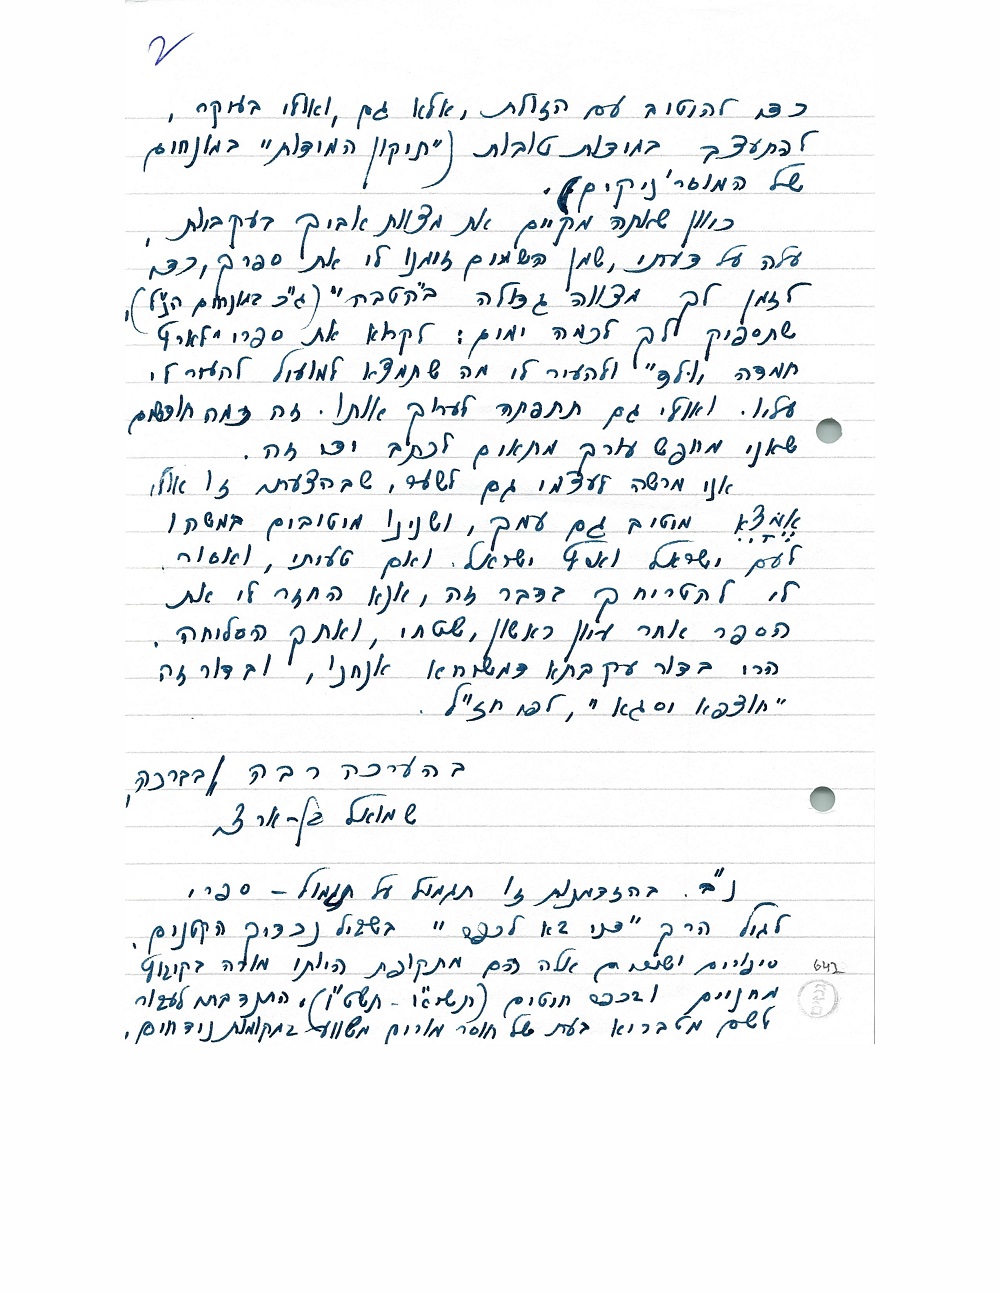 2
כדי להיטיב עם הזולת, אלא גם, ואולי בעיקר,
להתעצב במידות טובות ("תיקון המידות" במונחים
של המוסר'ניקים).
כיוון שאתה מקיים את מצוות אביך בעקבות,
עלה על דעתי, שמן השמים זימנו לי את ספרך, כדי
לזמן לך מצווה גדולה ב"הטבה" (ג"כ במונחים הנ"ל),
שתספיק לך לכמה ימים: לקרוא את ספרי "לארץ
חמדה וילד" ולהעיר לי מה שתמצא למועיל להעיר לי
עליו. ואולי גם תתפתה לערוך אותו. זה כמה חודשים
שאני מחפש עורך מתאים לכתב יד זה.
אני מרשה לעצמי גם לשער, שבהצעתי זו אולי
אמצא מיטיב גם עמך, ושנינו מיטיבים במשהו
לעם ישראל וארץ ישראל. ואם טעיתי, ואסור
לי להטריחך בדבר זה, אנא החזר לי את
הספר אחר עיון ראשון, שטחי, ואתך הסליחה.
הרי בדור עקבתא דמשיחא אנחנו, ובדור זה
"חוצפא יסגא", לפי חז"ל.
בהערכה רבה ובברכה,
שמואל בן-ארצי
נ"ב. בהזדמנות זו תגמול על תגמול – ספרי
לגיל הרך "דני בא לכפר" בשביל נכדיך הקטנים.
סיפורים ושירים אלה הם מתקופת היותי מורה בקיבוץ
מחניים ובכפר חיטים (תשי"ג - תשט"ו), התנדבתי לעבור
לשם מטבריא בעת של חוסר מורים משווע במקומות נידחים.
642